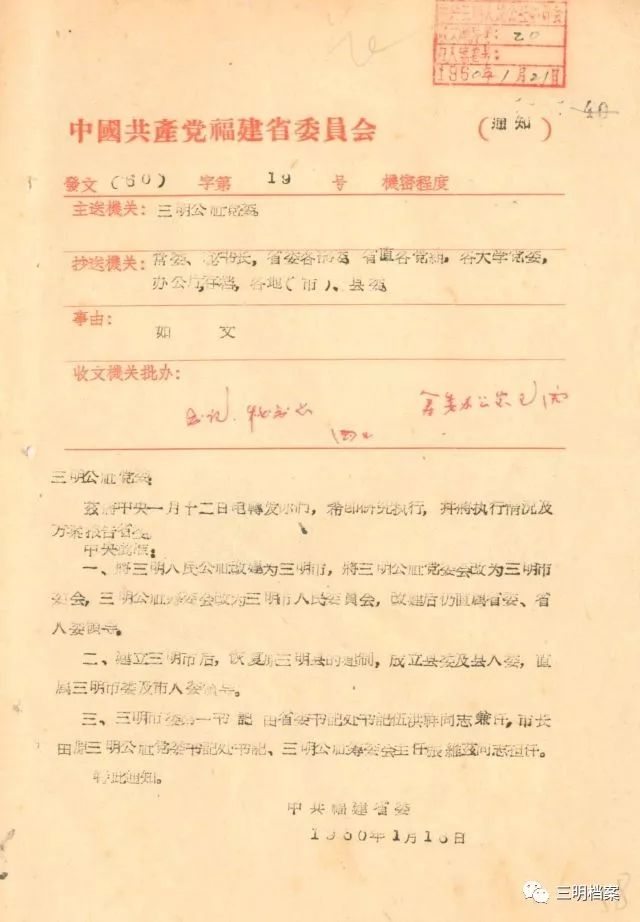 收文
1960年1月21日
20
40
中國共產党福建省委員会 （通知）
發文（60）字第 19 号 機密程度
主送機关：三明公社党委
抄送機关：常委、秘书长，省委各部委，省直各党組，各大学党委，
办公厅存档，各地（市）、县委
事由：
如 文
收文機关批办：
三明公社党委：
茲將中央一月十二日电轉发你們，希即研究执行，并將执行情况及
方案报告省委。
一、將三明人民公社改建为三明市，將三明公社党委会改为三明市
委会，三明公社筹委会改为三明市人民委員会，改建后仍直属省委、省
人委領导。
二、建立三明市后，恢复原三明县的建制，成立县委及县人委，直
属三明市委及市人委領导。
三、三明市委第一书記 由省委书記处书記伍洪祥同志兼任，市长
由原三明公社党委书記处书記、三明公社筹委会主任張維茲同志担任。
特此通知。
中共福建省委
1960年1月16日
三明档案